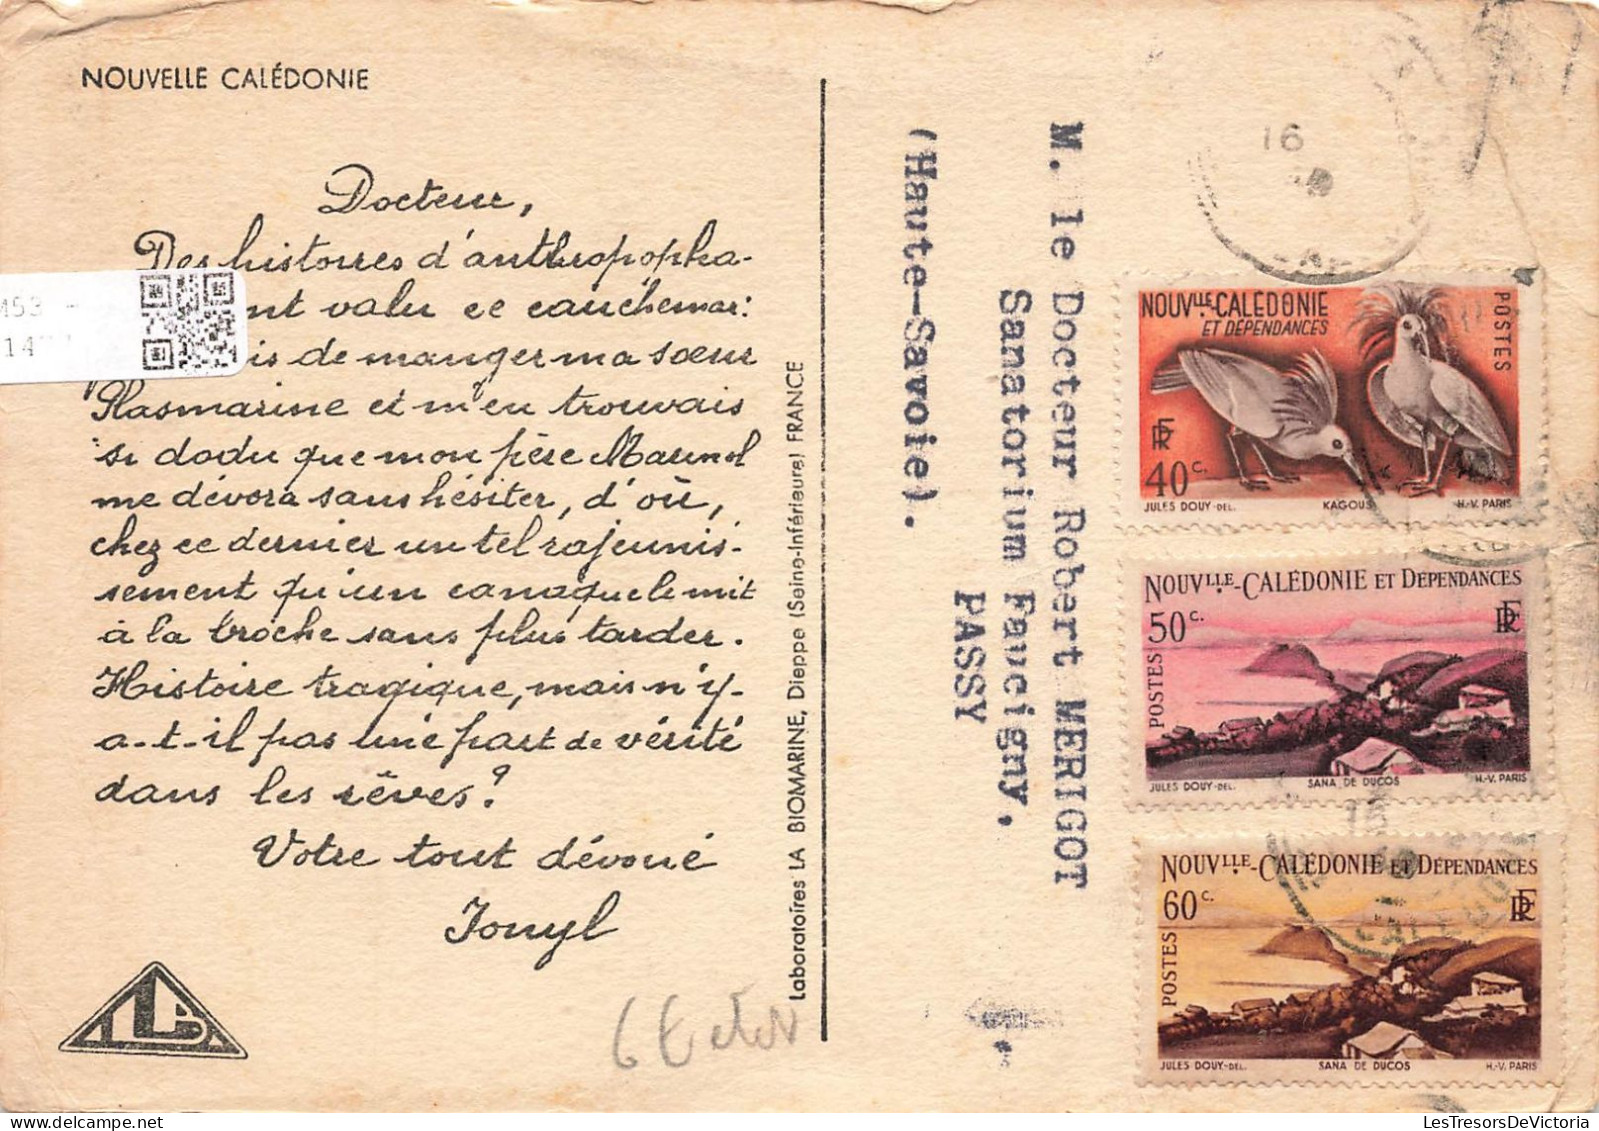 NOUVELLE CALÉDONIE
Docteur,
Des histoires d'anthropopha-
nt valu ce cauchemar:
is de manger ma sœur
Plasmarine et m'en trouvais
si dodu que mon père Marinol
me dévora sans hésiter, d'où,
chez ce dernier un tel rajeunis-
sement qu'un canaque le mit
à la broche sans plus tarder.
Histoire tragique, mais n'y-
a-t-il pas une part de vérité
dans les rêves?
Votre tout dévoué
Ionyl
M53 -
14
Laboratoires LA BIOMARINE, Dieppe (Seine-Inférieure) FRANCE
M. le Docteur Robert MERIGOT
Sanatorium Faucigny,
PASSY
(Haute-Savoie).
16
NOUVLLE-CALÉDONIE
ET DÉPENDANCES
POSTES
RF
40c.
JULES DOUY-DEL. KAGOUS H.-V. PARIS
NOUVLLE-CALÉDONIE ET DÉPENDANCES
50c. RF
POSTES
JULES DOUY-DEL. SANA DE DUCOS H.-V. PARIS
15
NOUVLLE-CALÉDONIE ET DÉPENDANCES
60c. RF
POSTES
JULES DOUY-DEL. SANA DE DUCOS H.-V. PARIS
LesTresorsDeVictoria